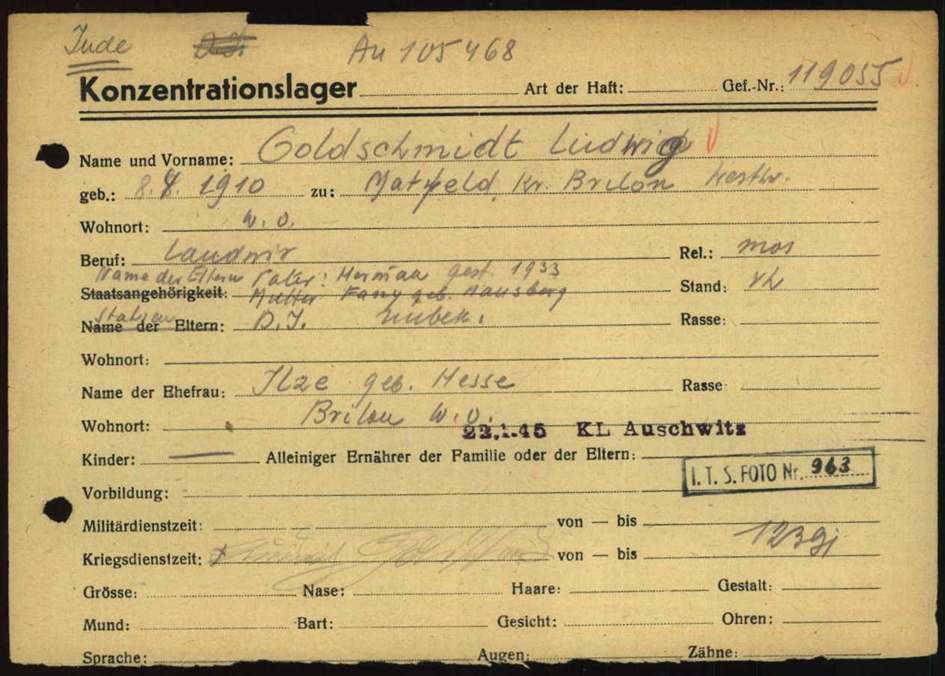 Jude Au 105468
Konzentrationslager Art der Haft: Gef.-Nr.: 119055
Name und Vorname: Goldschmidt Ludwig
geb.: 8. 8. 1910 zu: Matfeld, Kr. Brilon Westw.
Wohnort: w. o.
Beruf: Landwir Rel.: mos
Name der Eltern Vater: Herman gest. 1933
Staatsangehörigkeit: Mutter Fany geb. Mansberg Stand: vh
Name der Eltern: D.J. Rasse:
Wohnort:
Name der Ehefrau: Ilze geb. Hesse Rasse
Wohnort: Brilon w. o.
22.1.45 KL Auschwitz
Kinder: — Alleiniger Ernährer der Familie oder der Eltern:
I. T. S. FOTO Nr. 963
Vorbildung:
Militärdienstzeit: von — bis
Kriegsdienstzeit: von — bis
Grösse: Nase: Haare: Gestalt:
Mund: Bart: Gesicht: Ohren:
Sprache: Augen: Zähne: